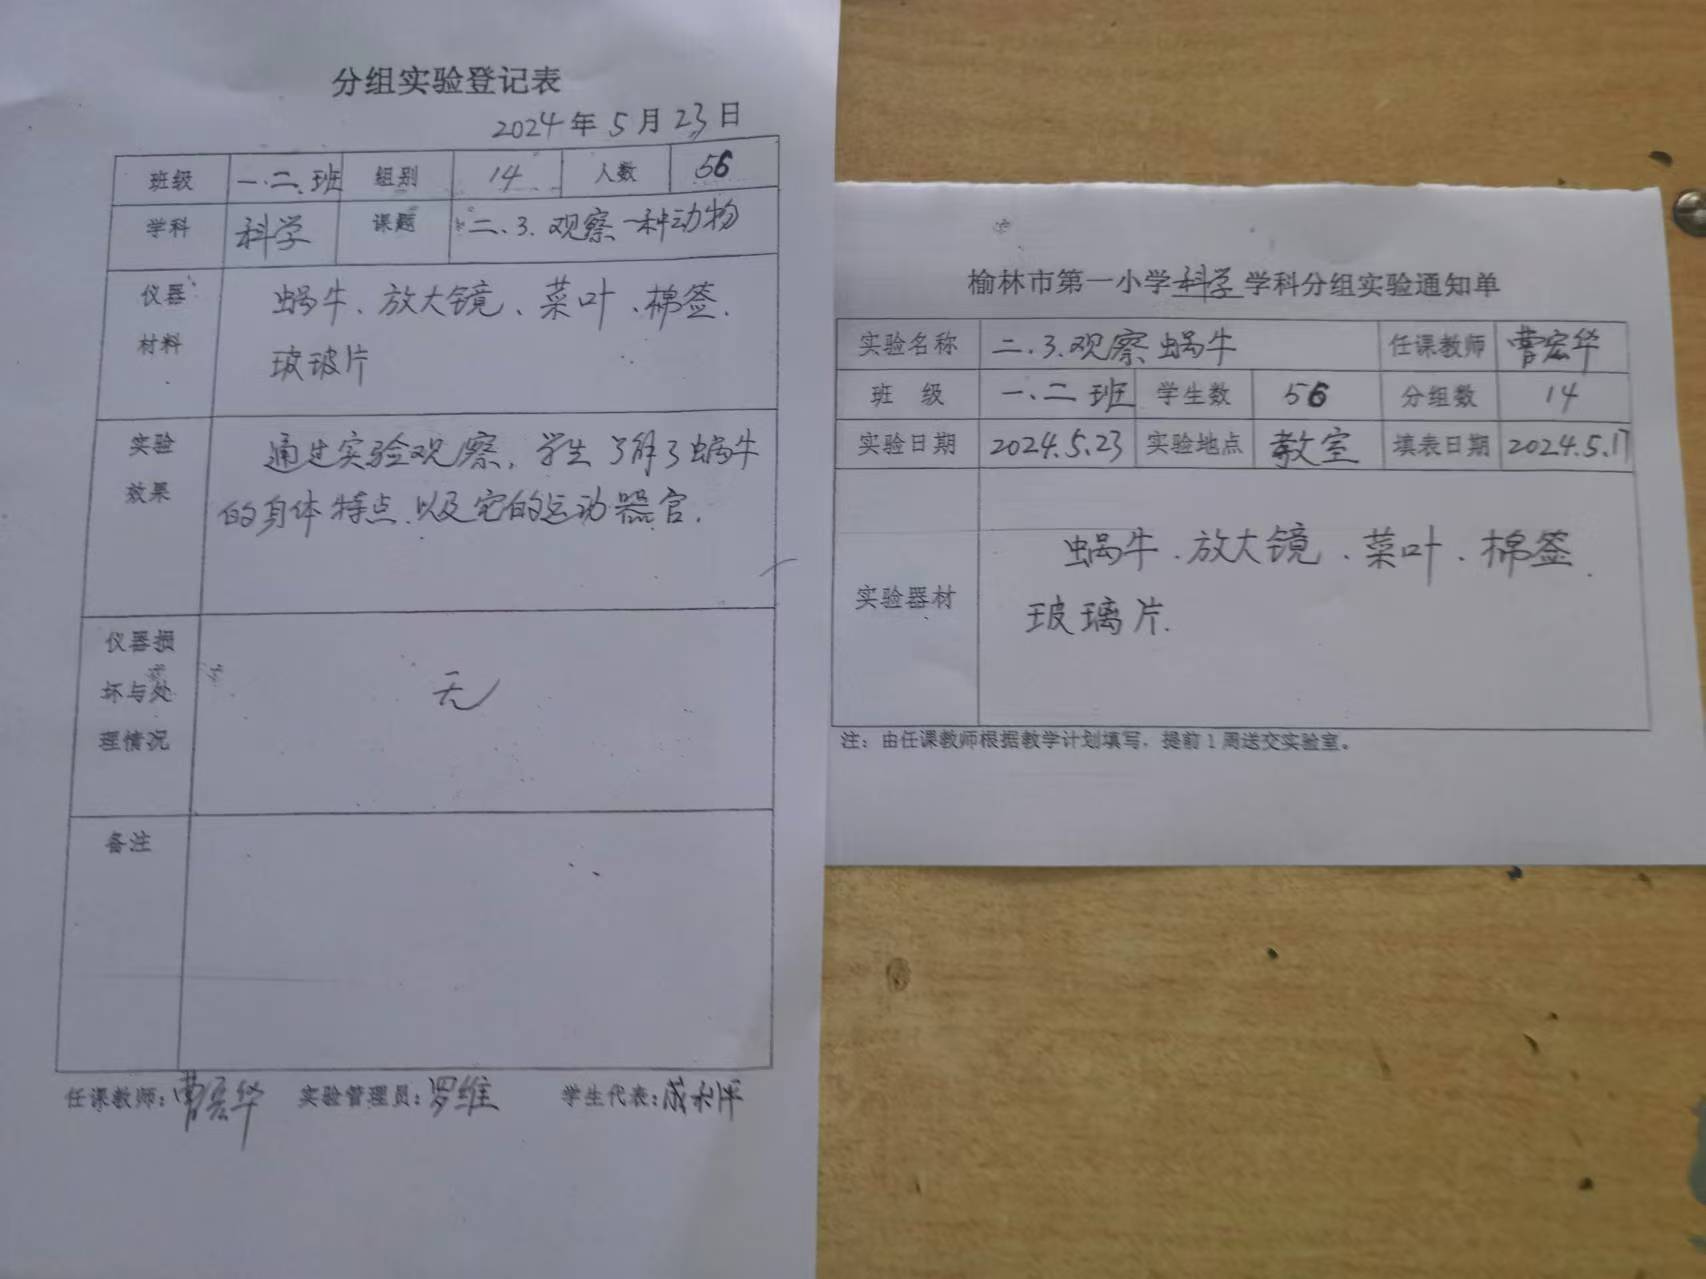 分组实验登记表
2024年5月23日
班级 一.二.班 组别 14 人数 56
学科 科学 课题 二.3.观察一种动物
仪器材料 蜗牛、放大镜、菜叶、棉签.
玻玻片
实验效果 通过实验观察,学生了解了蜗牛
的身体特点.以及它的运动器官.
仪器损坏与处理情况 无
备注
任课教师:曹宏华 实验管理员:罗维 学生代表:
榆林市第一小学科学学科分组实验通知单
实验名称 二.3.观察蜗牛 任课教师 曹宏华
班 级 一.二班 学生数 56 分组数 14
实验日期 2024.5.23 实验地点 教室 填表日期 2024.5.17
实验器材 蜗牛.放大镜、菜叶.棉签.
玻璃片.
注:由任课教师根据教学计划填写,提前1周送交实验室。